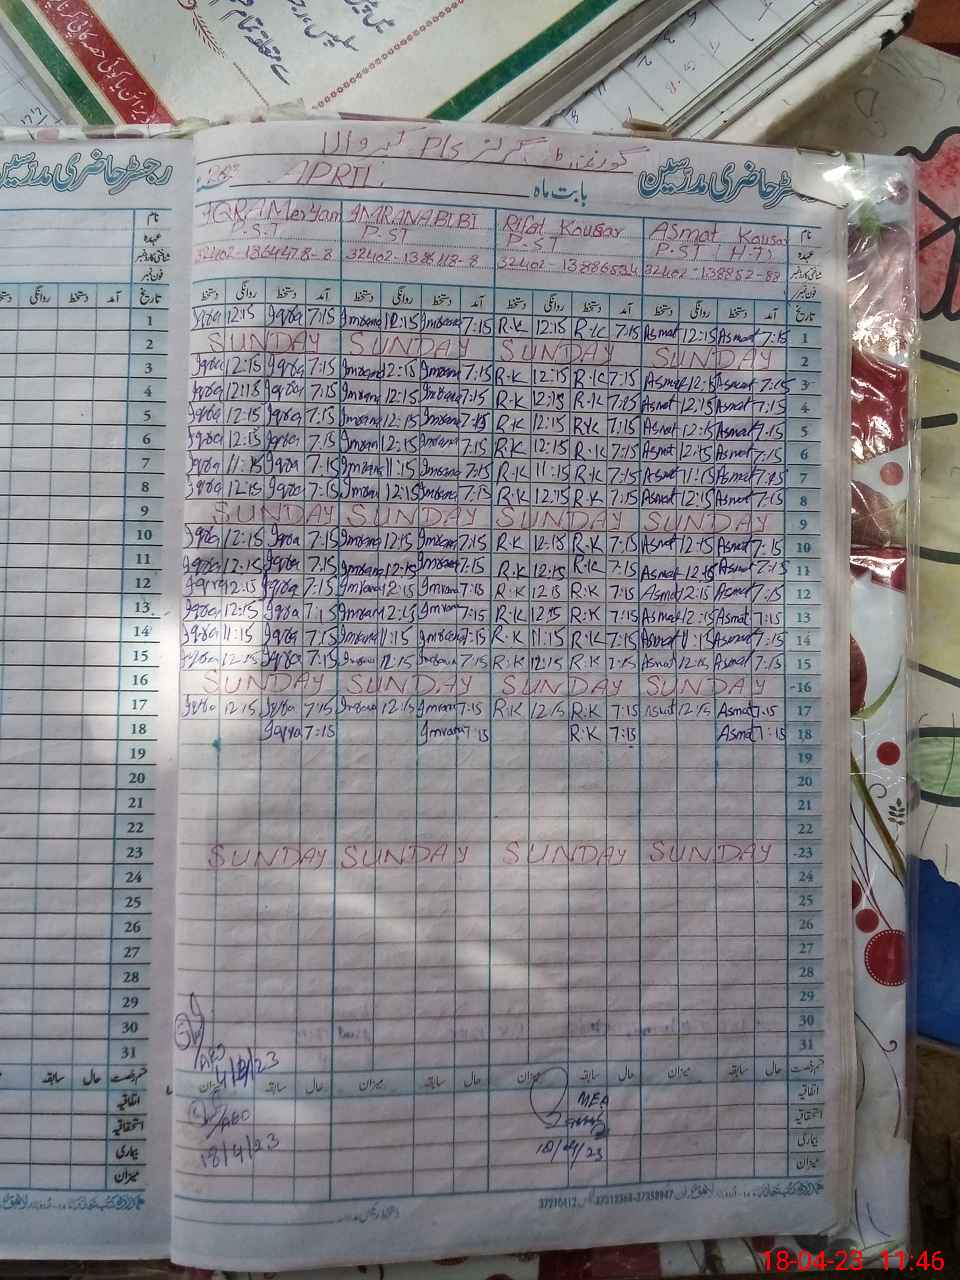 رجسٹر حاضری مدرسین
گورنمنٹ گرلز P/s
APRIL
بابت ماہ
رجسٹر حاضری مدرسین
نام IQRA Meryam IMRANA BIBI Rifat Kousar ASmat Kousar نام
عہدہ P.S.T P.ST P-ST P-ST (H-T) عہدہ
شناختی کارڈ نمبر شناختی کارڈ نمبر
فون نمبر فون نمبر
تاریخ آمد دستخط روانگی دستخط آمد دستخط روانگی دستخط آمد دستخط روانگی دستخط آمد دستخط روانگی دستخط آمد دستخط تاریخ
1 Iqra 12:15 Iqra 7:15 Imrana 12:15 Imrana 7:15 R.K 12:15 R.K 7:15 Asmat 12:15 Asmat 7:15 1
2 SUNDAY SUNDAY SUNDAY SUNDAY 2
3 Iqra 12:15 Iqra 7:15 Imrana 12:15 Imrana 7:15 R.K 12:15 R.K 7:15 Asmat 12:15 Asmat 7:15 3
4 Iqra 12:15 Iqra 7:15 Imrana 12:15 Imrana 7:15 R.K 12:15 R.K 7:15 Asmat 12:15 Asmat 7:15 4
5 Iqra 12:15 Iqra 7:15 Imrana 12:15 Imrana 7:15 R.K 12:15 R.K 7:15 Asmat 12:15 Asmat 7:15 5
6 Iqra 12:15 Iqra 7:15 Imran 12:15 Imrana 7:15 R.K 12:15 R.K 7:15 Asmat 12:15 Asmat 7:15 6
7 Iqra 11:15 Iqra 7:15 Imrana 11:15 Imrana 7:15 R.K 11:15 R.K 7:15 Asmat 11:15 Asmat 7:15 7
8 Iqra 12:15 Iqra 7:15 Imran 12:15 Imrana 7:15 R.K 12:15 R.K 7:15 Asmat 12:15 Asmat 7:15 8
9 SUNDAY SUNDAY SUNDAY SUNDAY 9
10 Iqra 12:15 Iqra 7:15 Imrana 12:15 Imrana 7:15 R.K 12:15 R.K 7:15 Asmat 12:15 Asmat 7:15 10
11 Iqra 12:15 Iqra 7:15 Imrana 12:15 Imrana 7:15 R.K 12:15 R.K 7:15 Asmat 12:15 Asmat 7:15 11
12 Iqra 12:15 Iqra 7:15 Imrana 12:15 Imrana 7:15 R.K 12:15 R.K 7:15 Asmat 12:15 Asmat 7:15 12
13 Iqra 12:15 Iqra 7:15 Imrana 12:15 Imrana 7:15 R.K 12:15 R.K 7:15 Asmat 12:15 Asmat 7:15 13
14 Iqra 11:15 Iqra 7:15 Imrana 11:15 Imrana 7:15 R.K 11:15 R.K 7:15 Asmat 11:15 Asmat 7:15 14
15 Iqra 12:15 Iqra 7:15 Imrana 12:15 Imrana 7:15 R.K 12:15 R.K 7:15 Asmat 12:15 Asmat 7:15 15
16 SUNDAY SUNDAY SUNDAY SUNDAY 16
17 Iqra 12:15 Iqra 7:15 Imrana 12:15 Imrana 7:15 R.K 12:15 R.K 7:15 Asmat 12:15 Asmat 7:15 17
18 Iqra 7:15 Imrana 7:15 R.K 7:15 Asmat 7:15 18
19 19
20 20
21 21
22 22
23 SUNDAY SUNDAY SUNDAY SUNDAY 23
24 24
25 25
26 26
27 27
28 28
29 29
30 30
31 31
سابقہ حال قسم رخصت میزان سابقہ حال میزان سابقہ حال میزان سابقہ حال میزان سابقہ حال قسم رخصت
اتفاقیہ AEO MEA اتفاقیہ
استحقاقیہ AEO استحقاقیہ
بیماری 18/4/23 18/4/23 بیماری
میزان میزان
18-04-23 11:46